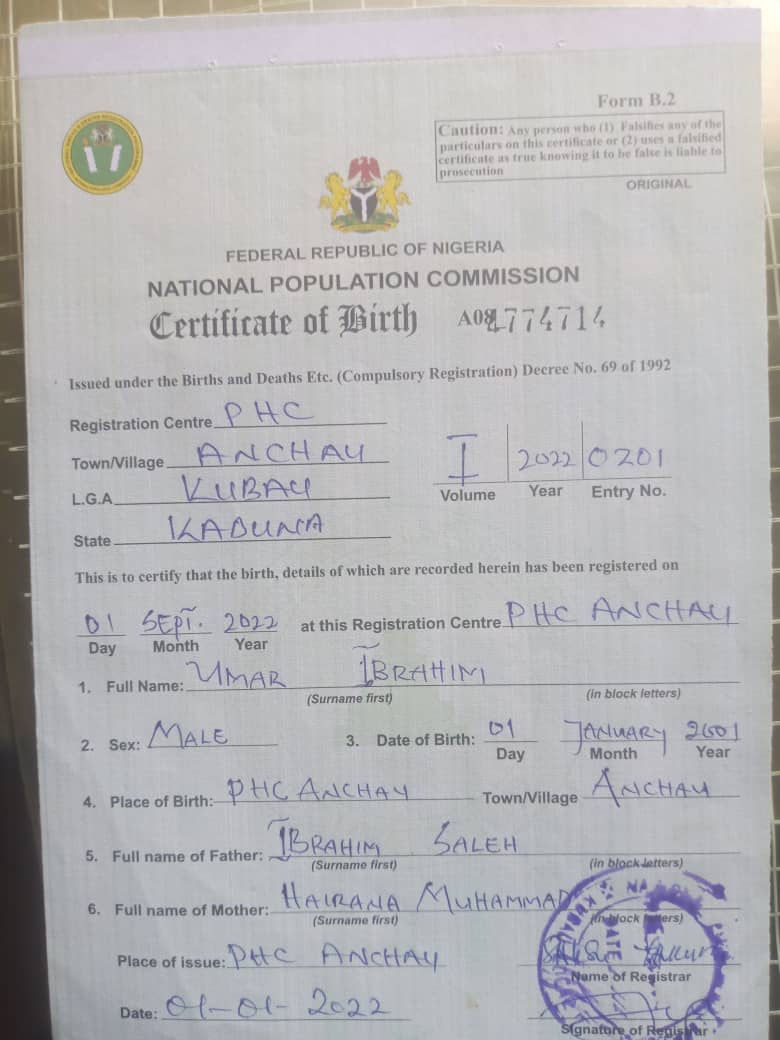 Form B.2
Caution: Any person who (1) Falsifies any of the
particulars on this certificate or (2) uses a falsified
certificate as true knowing it to be false is liable to
prosecution
ORIGINAL
FEDERAL REPUBLIC OF NIGERIA
NATIONAL POPULATION COMMISSION
Certificate of Birth
Issued under the Births and Deaths Etc. (Compulsory Registration) Decree No. 69 of 1992
Registration Centre PHC
Town/Village ANCHAU
L.G.A KUBAU
State KADUNA
I 2022 0201
Volume Year Entry No.
This is to certify that the birth, details of which are recorded herein has been registered on
01 SEPT. 2022 at this Registration Centre PHC ANCHAU
Day Month Year
1. Full Name: UMAR IBRAHIM
(Surname first) (in block letters)
2. Sex: MALE 3. Date of Birth: 01 JANUARY 2001
Day Month Year
4. Place of Birth: PHC ANCHAU Town/Village ANCHAU
5. Full name of Father: IBRAHIM SALEH
(Surname first) (in block letters)
6. Full name of Mother: HAIRANA MUHAMMAD
(Surname first) (in block letters)
Place of issue: PHC ANCHAU
Name of Registrar
Date: 01-01-2022
Signature of Registrar